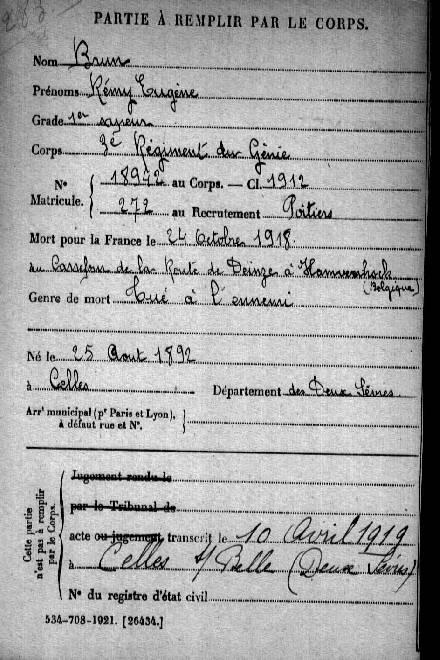 283
PARTIE À REMPLIR PAR LE CORPS.
Nom Brun
Prénoms Rémy Eugène
Grade 1er sapeur
Corps 3e Régiment du Génie
N° Matricule. 18972 au Corps. — Cl. 1912
272 au Recrutement Poitiers
Mort pour la France le 24 Octobre 1918
au Carrefour de la Route de Deinze à
(Belgique)
Genre de mort Tué à l'ennemi
Né le 25 Aout 1892
à Celles Département des Deux Sèvres
Arrt municipal (pr Paris et Lyon),
à défaut rue et N°.
Cette partie n'est pas à remplir par le Corps.
Jugement rendu le
par le Tribunal de
acte ou jugement transcrit le 10 Avril 1919
à Celles s/ Belle (Deux Sèvres)
N° du registre d'état civil
534-708-1921. [26434.]